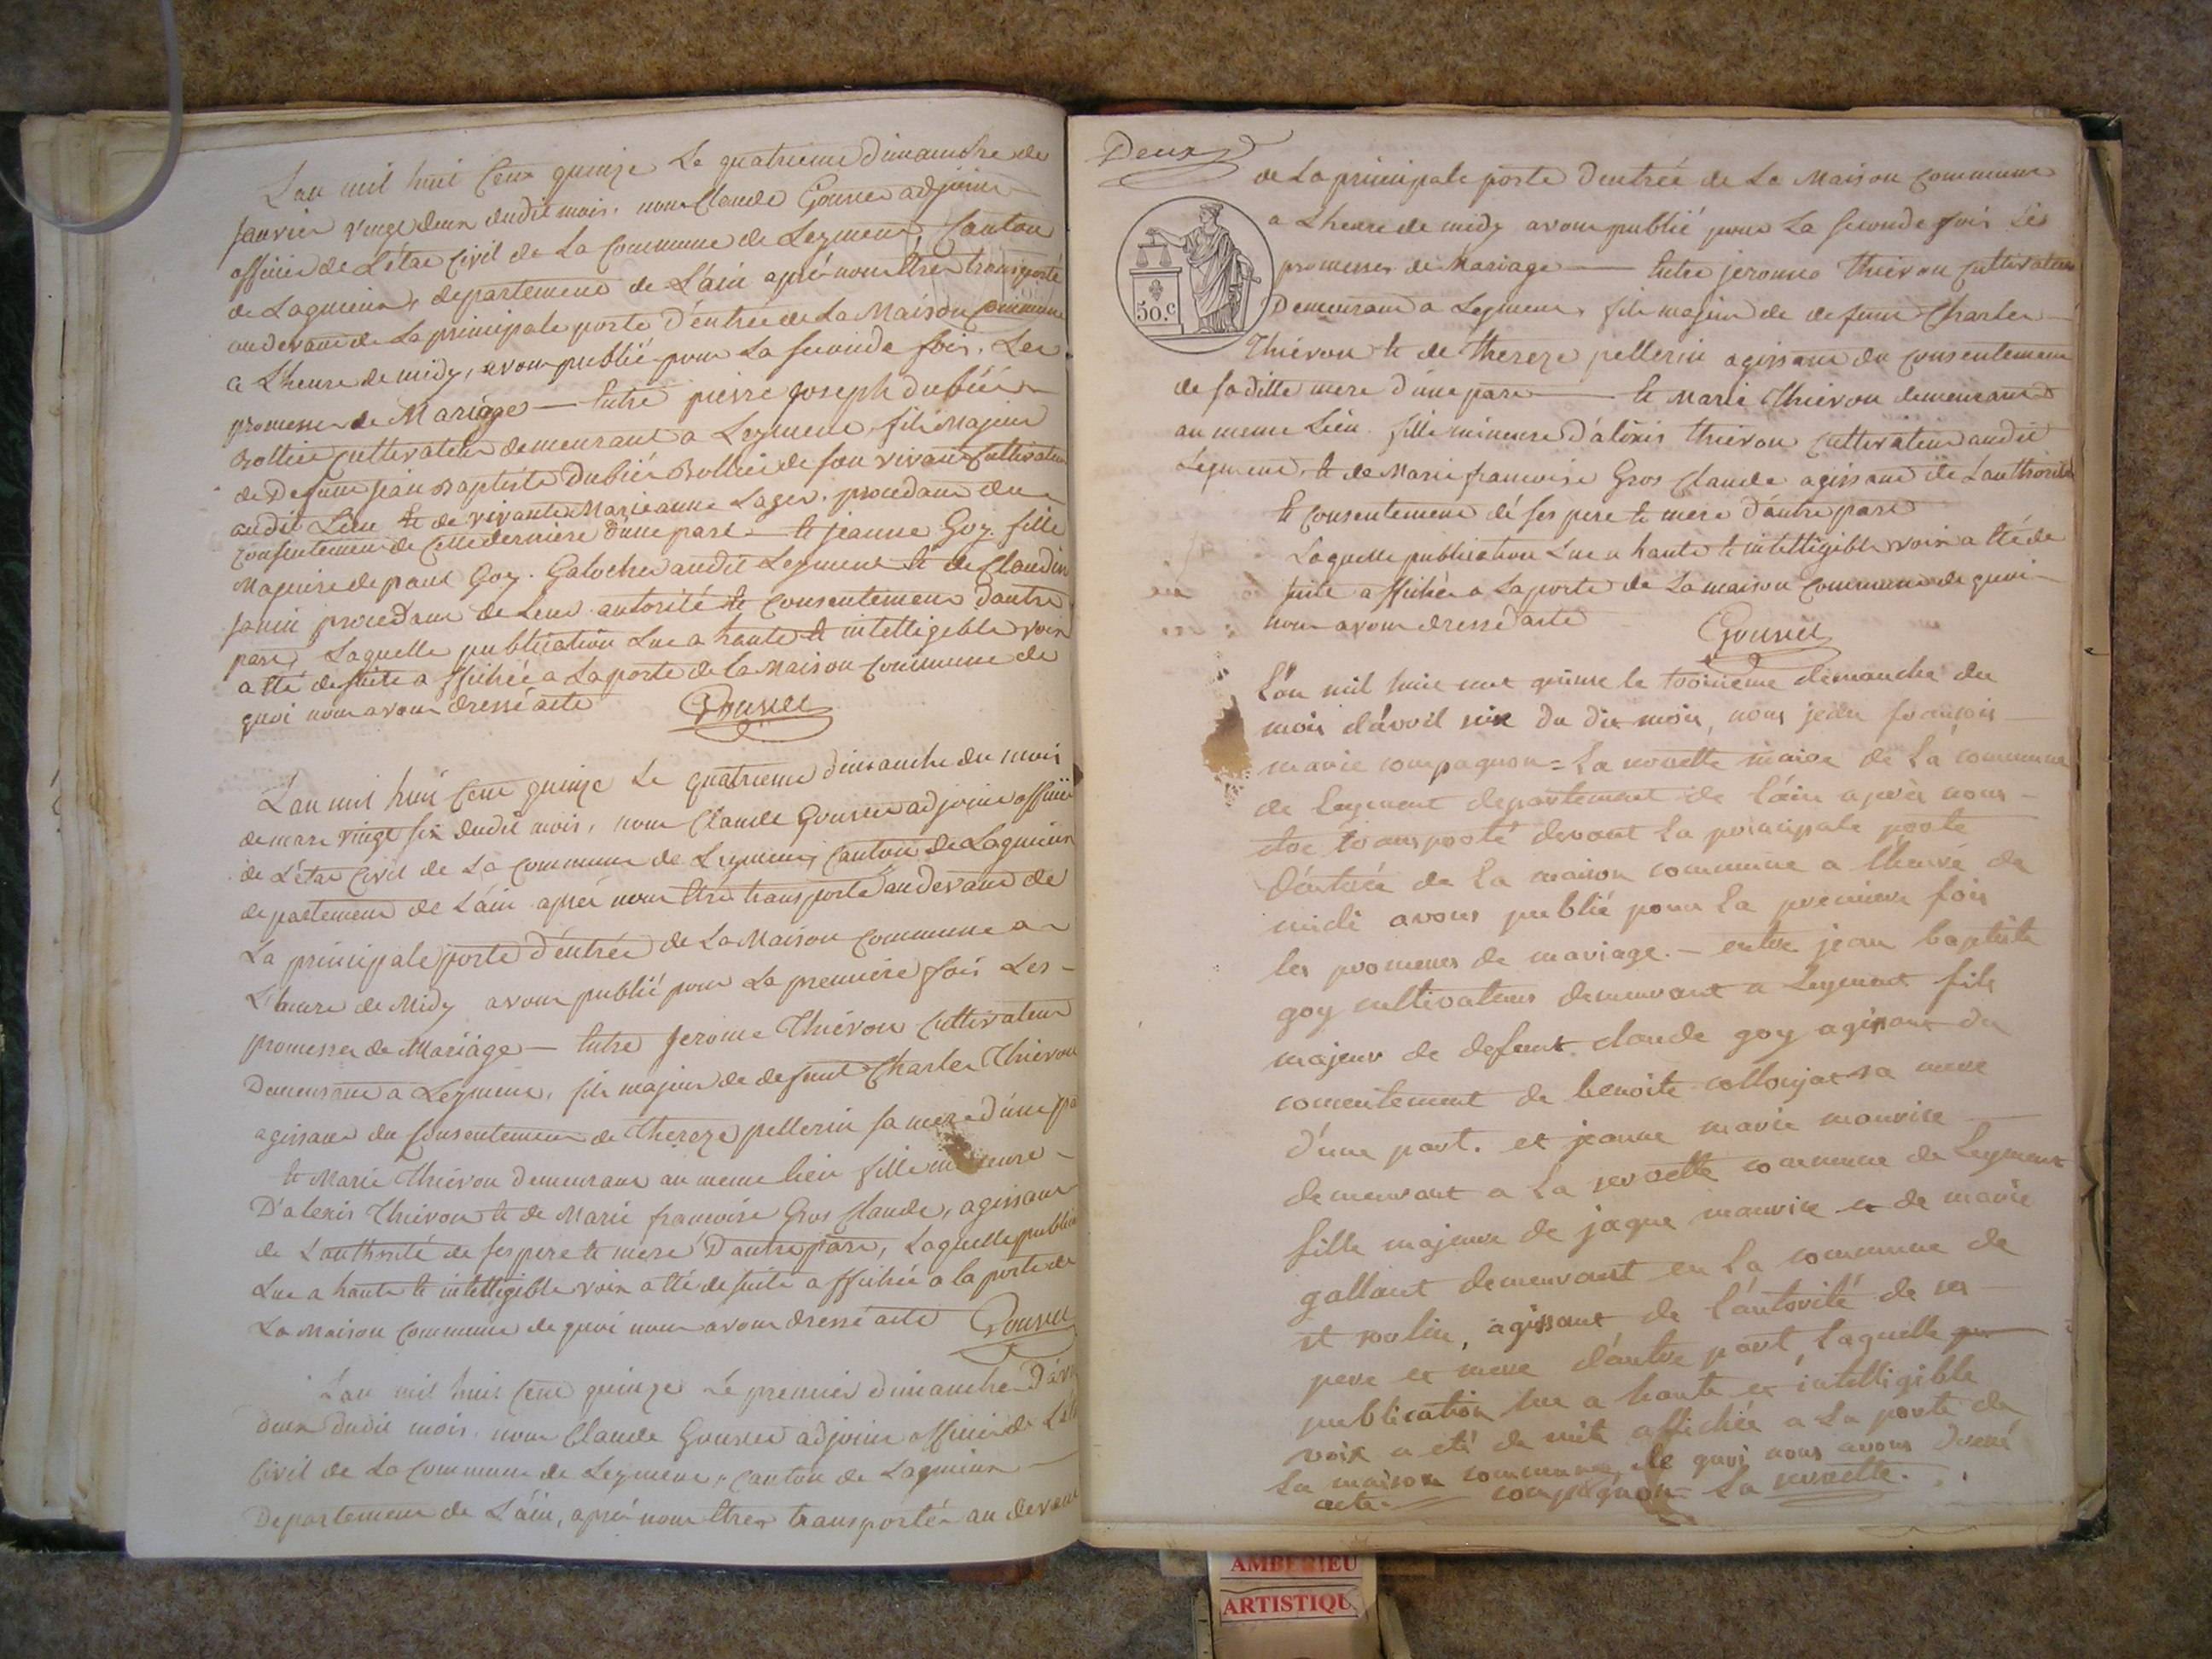 L'an mil huit Cent quinze Le quatrieme dimanche de
Janvier vingt deux dudit mois, nous Claude Gousset adjoint
officier de L'état Civil de La Commune de Leyment Canton
de Lagnieux, departement de L'ain aprés nous êtres transporté
audevant de La principale porte d'entrée de La Maison Commune
a L'heure de midy, avons publié pour La seconde fois, Les
promesses de Mariage — Entre pierre joseph dubié
Bollier Cultivateur demeurant a Leyment, fils Majeur
de Defunt jean Baptiste Dubié Bollier de son vivant Cultivateur
audit Lieu et de vivante Marieanne Lager, procedant du
Consentement de Cette derniere d'une part — et jeanne Goy fille
Majeure de paul Goy. Galocher audit Leyment et de Claudine
Janin procedant de Leur autorité et Consentement d'autre
part, Laquelle publication Lue a haute et intelligible voix
a été de suite affichée a La porte de la Maison Commune de
quoi nous avons dressé acte Gousset
L'an mil huit Cent quinze Le quatrieme dimanche du mois
de mars vingt six dudit mois, nous Claude Gousset adjoint officier
de L'état Civil de La Commune de Leyment, Canton de Lagnieux
departement de L'ain aprés nous êtres transporté audevant de
La principale porte d'entrée de La Maison Commune a
L'heure de Midy avons publié pour La premiere fois Les
promesses de Mariage — Entre Jerome Thiévon Cultivateur
Demeurant a Leyment, fils majeur de defunt Charles Thievon
agissant du Consentement de Thereze pellerin sa mere d'une pa
et Marie Thiévon demeurant au meme lieu fille mineure
D'alexis Thiévon et de Marie francoise Gros Claude, agissant
de L'authorité de ses pere et mere D'autre part, Laquelle public
Lue a haute et intelligible voix a été de suite affichée a la porte de
La Maison Commune de quoi nous avons dressé acte Gousset
L'an mil huit Cent quinze Le premier dimanche D'avr
deux dudit mois, nous Claude Gousset adjoint officier de L'ét
Civil de La Commune de Leyment, Canton de Lagnieux
Departement de L'ain, aprés nous êtres transportés au devant
Deux
50.c
de La principale porte d'entrée de La Maison Commune
a L'heure de midy avons publié pour La seconde fois Les
promesses de Mariage — Entre jeromes Thiévon Cultivateur
Demeurant a Leyment, fils majeur de defunt Charles
Thiévon et de Thereze pellerin agissant du Consentement
de saditte mere d'une part — et Marie Thiévon demeurant
au meme Lieu fille mineure d'alexis thiévon Cultivateur audit
Leyment, et de Marie francoise Gros Claude agissant de L'authorité
et Consentement de ses pere et mere d'autre part
Laquelle publication Lue a haute et intelligible voix a été de
suite affichée a La porte de La maison Commune de quoi
nous avons dressé acte Gousset
L'an mil huit cent quinze le troisieme dimanche du
mois d'avril du dit mois, nous jean francois
marie compagnon = La servette maire de La commune
de Leyment departement de l'ain après nous
etre transporté devant La principale porte
d'entrée de La maison commune a l'heure de
midi avons publié pour La premiere fois
les promesses de mariage. — entre jean baptiste
goy cultivateur demeurant a Leyment fils
majeur de defunt claude goy agissant du
consentement de benoite sa mere
d'une part. et jeanne marie maurice
demeurant a La servette commune de Leyment
fille majeure de jaque maurice et de marie
gallant demeurant en La commune de
st vulin, agissant de l'autorité de ses
pere et mere d'autre part, Laquelle
publication lue a haute et intelligible
voix a été de suite affichée a La porte de
La maison commune, de quoi nous avons dressé
acte compagnon La servette.
AMBERIEU
ARTISTIQU